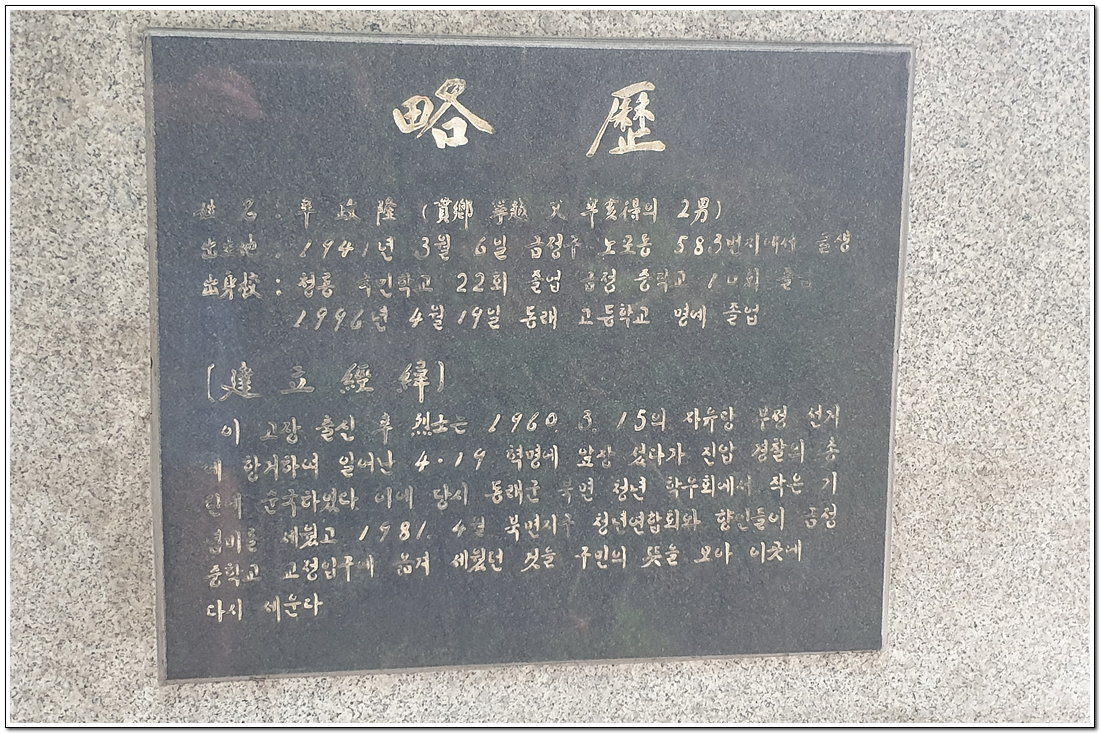 略 歷
姓 名 : 辛 政 隆 (貫鄕 寧越 父 辛亥得의 2男)
出生地 : 1941年 3월 6일 금정구 노포동 583번지에서 출생
出身校 : 청룡 국민학교 22회 졸업 금정 중학교 10회 졸업
1996년 4월 19일 동래 고등학교 명예 졸업
[建 立 經 緯]
이 고장 출신 辛 烈士는 1960. 3. 15의 자유당 부정 선거
에 항거하여 일어난 4·19 혁명에 앞장 섰다가 진압 경찰의 총
탄에 순국하였다 이에 당시 동래군 북면 청년 학우회에서 작은 기
념비를 세웠고 1981. 4월 북면지구 청년연합회와 향인들이 금정
중학교 교정입구에 옮겨 세웠던 것을 구민의 뜻을 모아 이곳에
다시 세운다